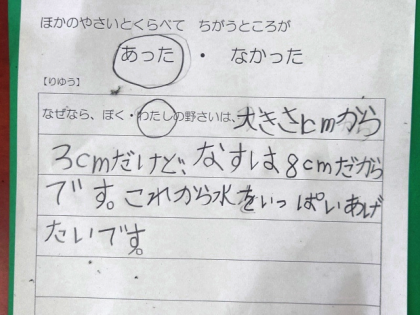 ほかのやさいとくらべて ちがうところが
あった ・ なかった
【りゆう】
なぜなら、ぼく・わたしの野さいは、大きさ1cmから
3cmだけど、なすは8cmだから
です。これから水をいっぱいあげ
たいです。